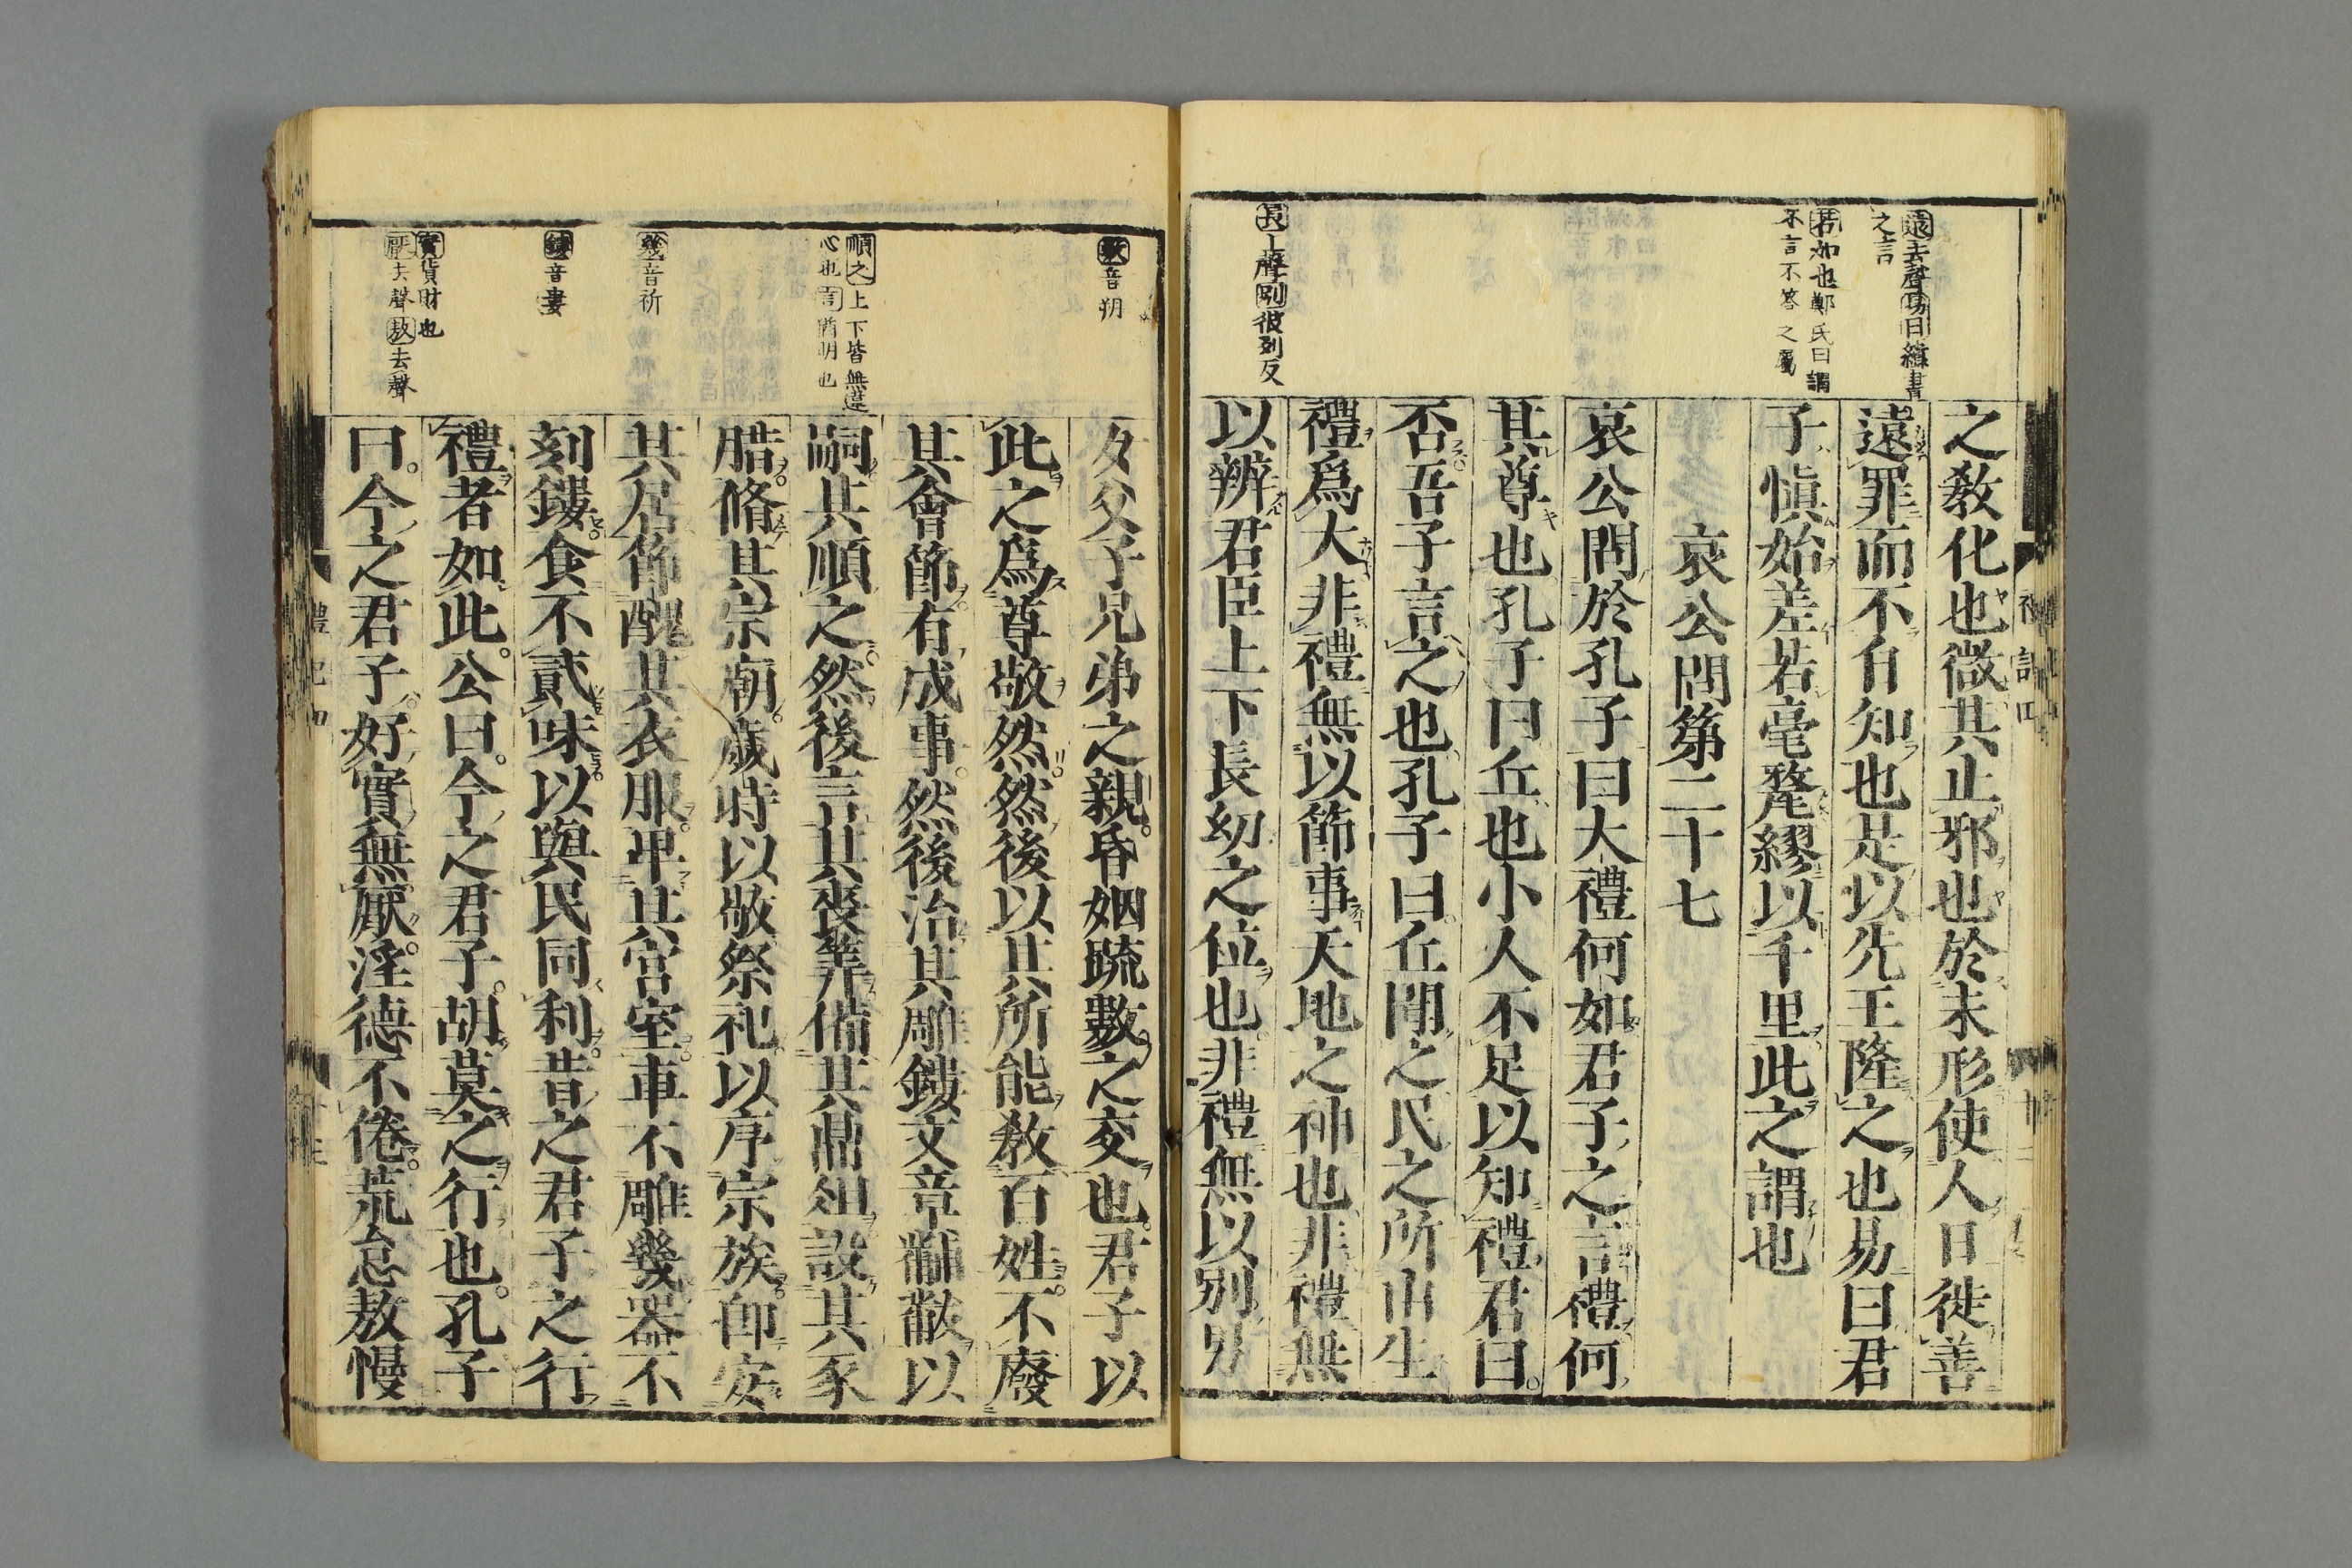 遠去聲易曰緯書
之言
若如也鄭氏曰謂
不言不答之屬
長上聲別彼列反
之教化也微其止邪也於未形使人日徙善
遠罪而不自知也是以先王隆之也易曰君
子愼始差若毫氂繆以千里此之謂也
哀公問第二十七
哀公問於孔子曰大禮何如君子之言禮何
其尊也孔子曰丘也小人不足以知禮君曰
否吾子言之也孔子曰丘聞之民之所由生
禮爲大非禮無以節事天地之神也非禮無
以辨君臣上下長幼之位也非禮無以別男
數音朔
順之上下皆無違
心也言猶明也
幾音祈
鏤音婁
實貨財也
厭去聲敖去聲
女父子兄弟之親昏姻疏數之交也君子以
此之爲尊敬然然後以其所能教百姓不廢
其會節有成事然後治其雕鏤文章黼黻以
嗣其順之然後言其喪筭備其鼎俎設其豕
腊脩其宗廟歲時以敬祭祀以序宗族卽安
其居節醜其衣服卑其宮室車不雕幾器不
刻鏤食不貳味以與民同利昔之君子之行
禮者如此公曰今之君子胡莫之行也孔子
曰今之君子好實無厭淫德不倦荒怠敖慢